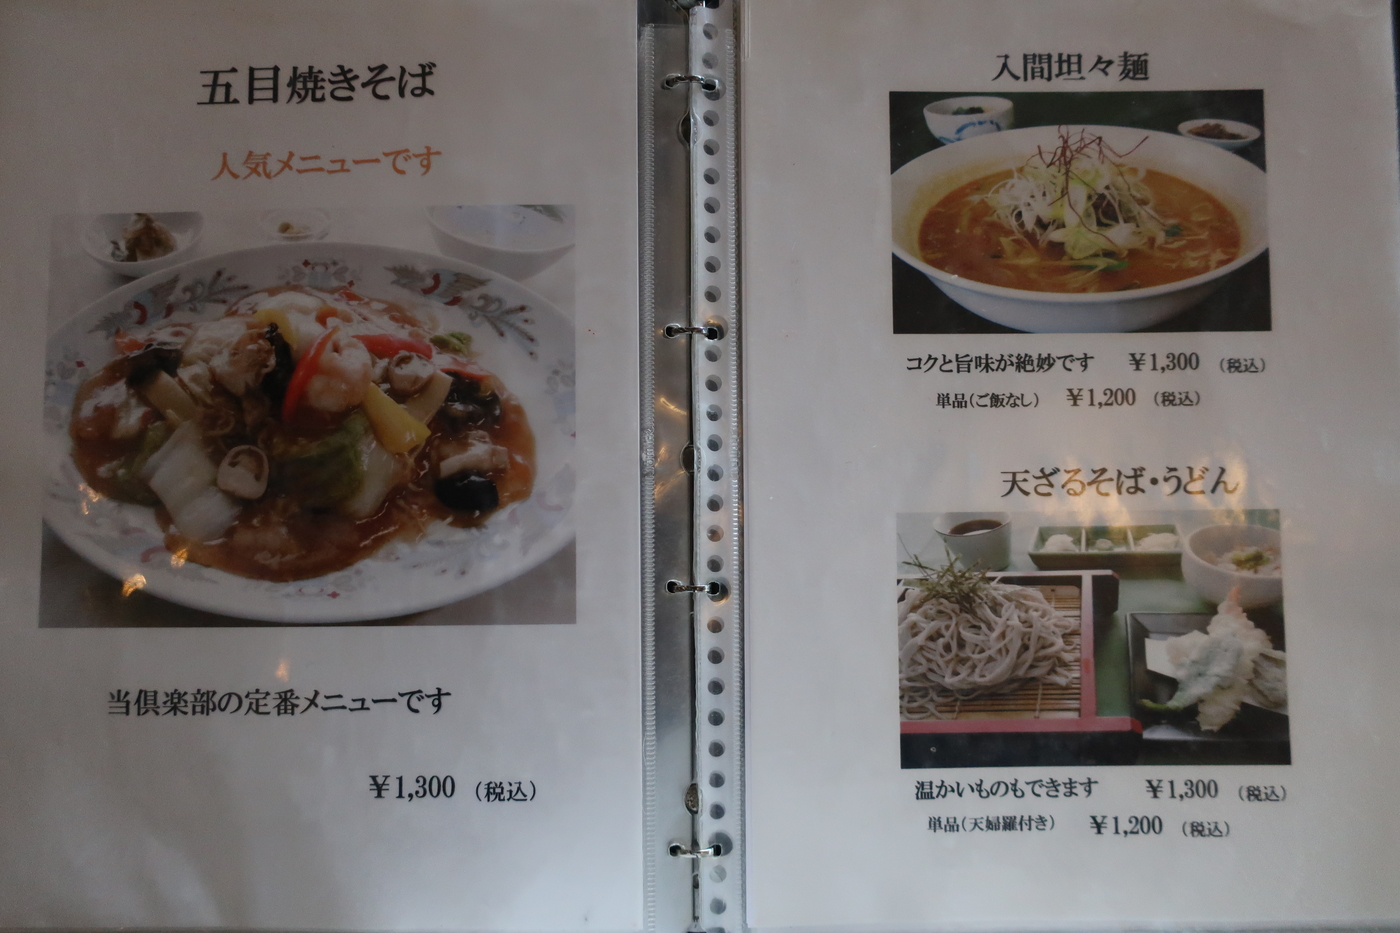 五目焼きそば
人気メニューです
当倶楽部の定番メニューです
￥1,300 （税込）
入間坦々麺
コクと旨味が絶妙です ￥1,300 （税込）
単品（ご飯なし） ￥1,200 （税込）
天ざるそば・うどん
温かいものもできます ￥1,300 （税込）
単品（天婦羅付き） ￥1,200 （税込）